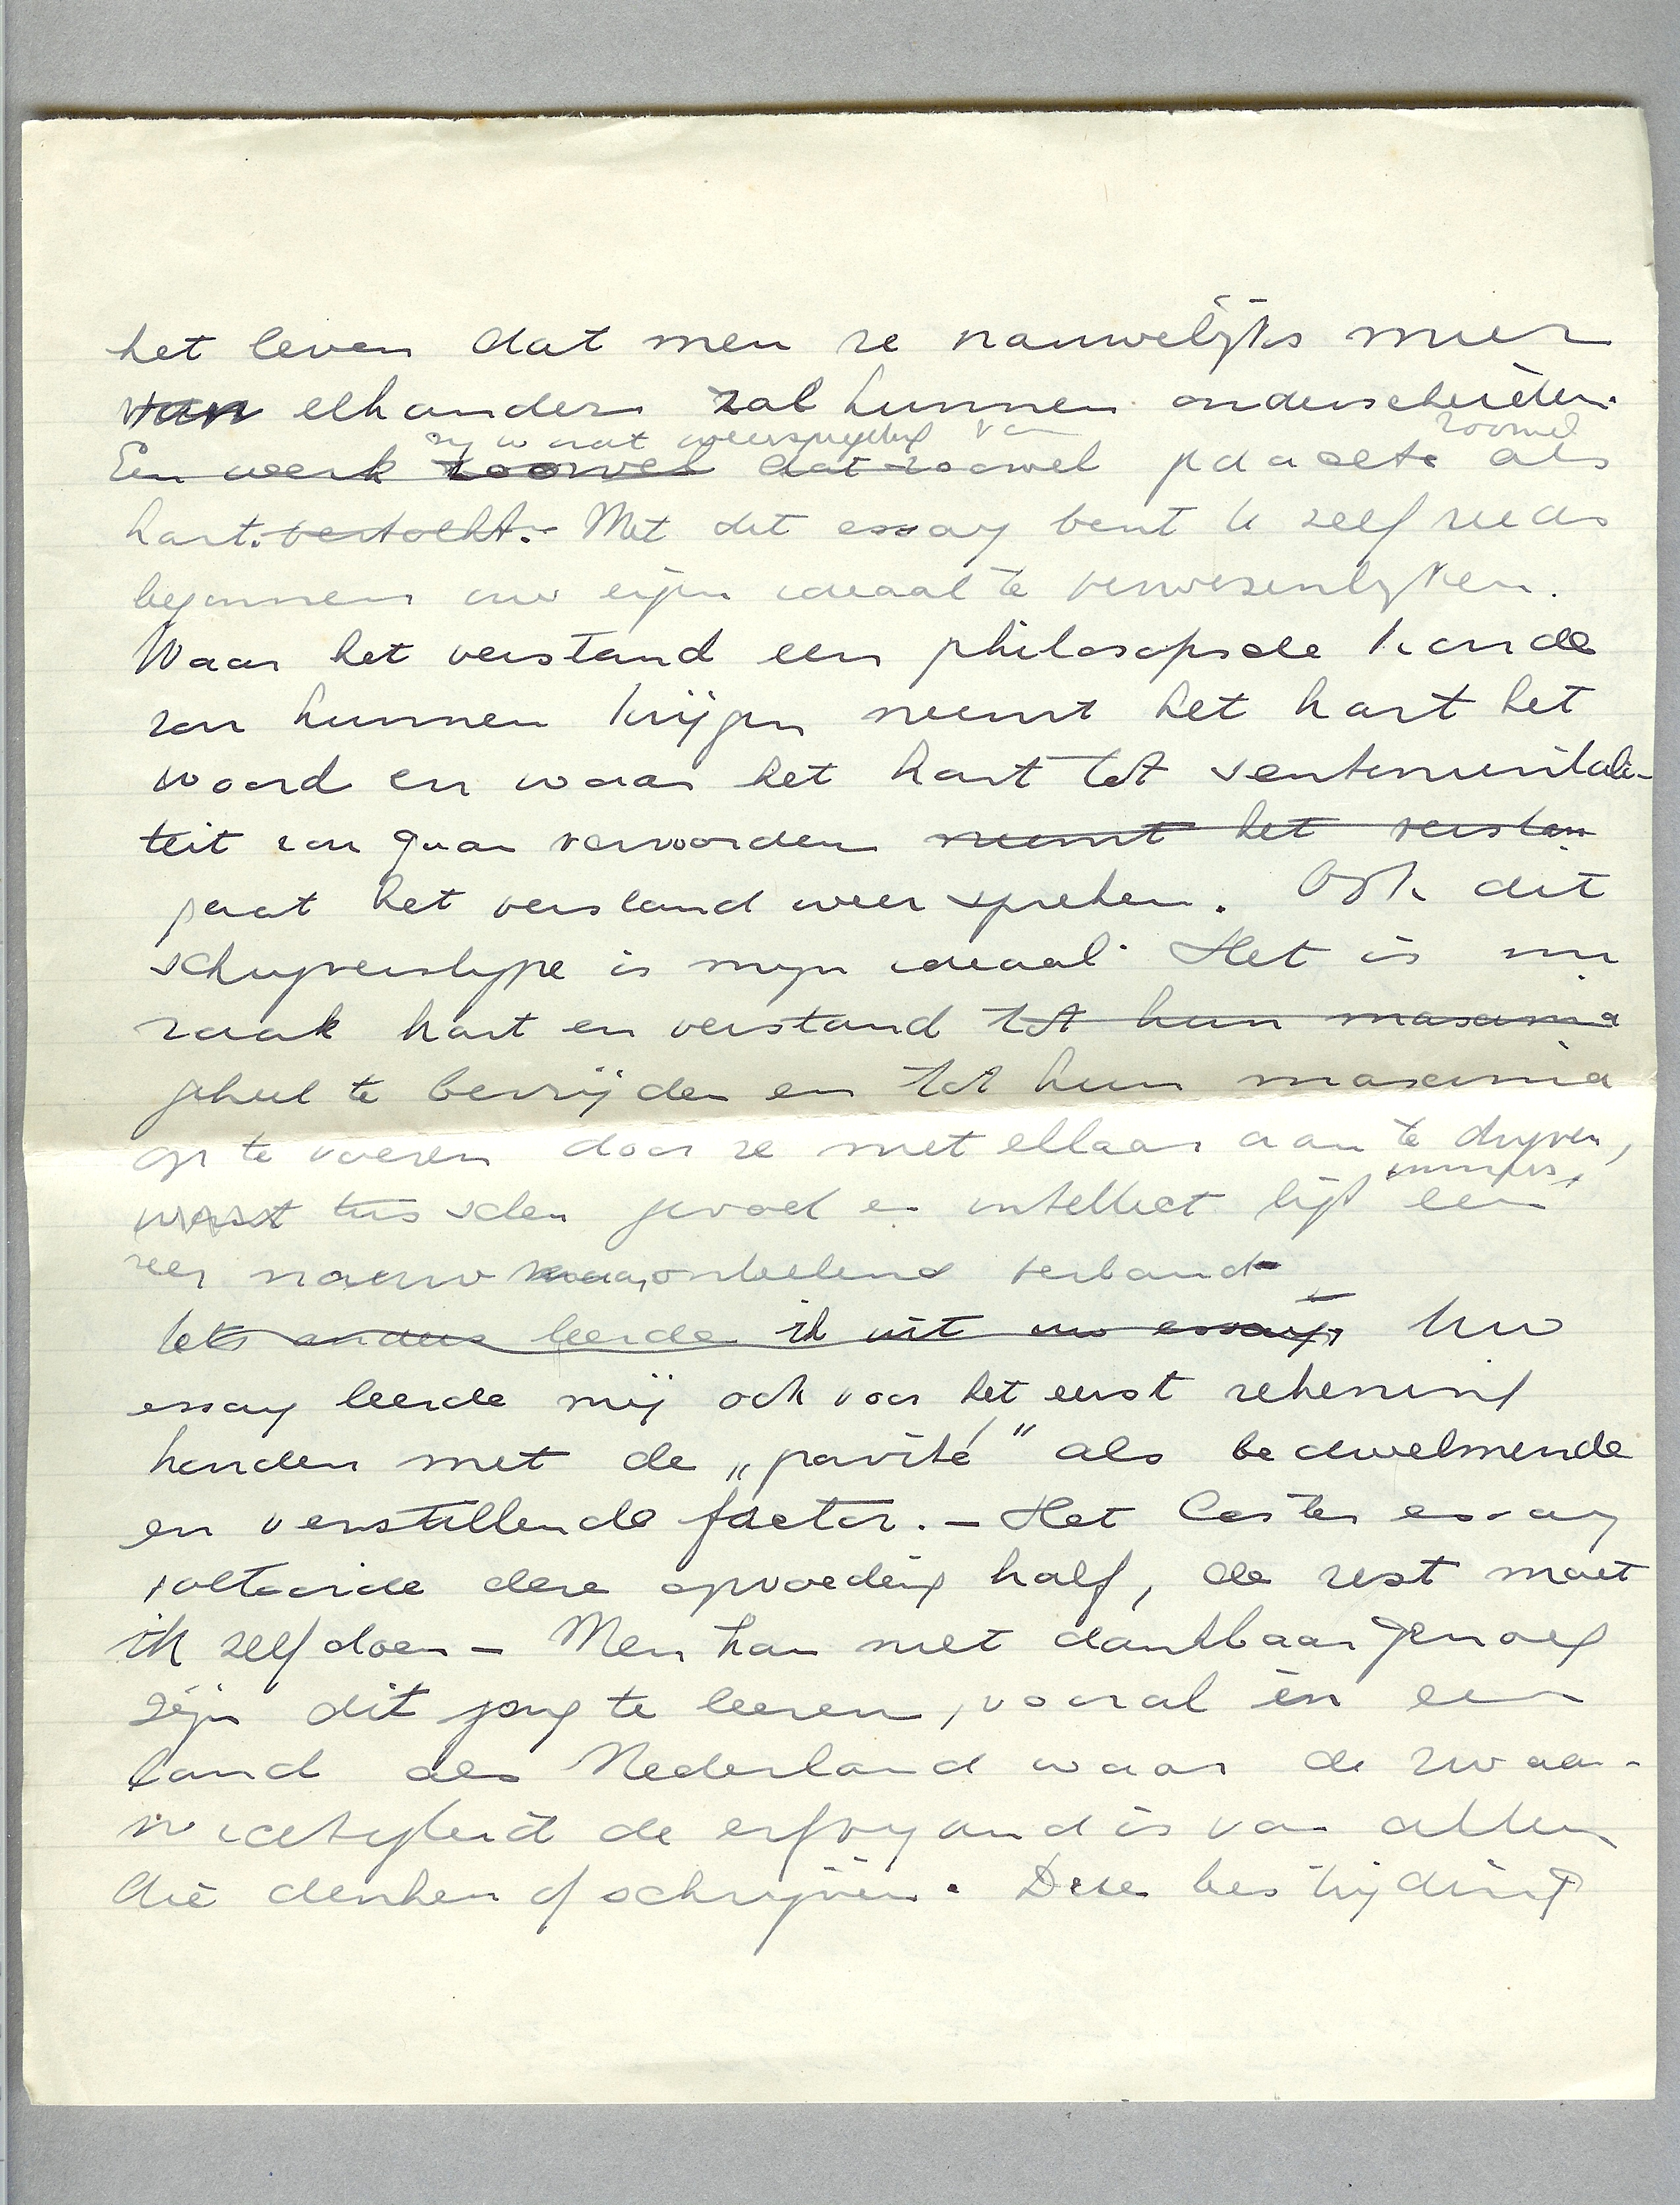 het leven dat men ze nauwelijks meer
van elkander zal kunnen onderscheiden.
zoowel
Een werk zoowel dat zoowel gedachte als
hart bertocht. Met dit essay bent U zelf reeds
begonnen uw eigen ideaal te verwezenlijken.
Waar het verstand een philosofische koude
zou kunnen krijgen neemt het hart het
woord en waar het hart tot sentimentali-
teit zou gaan verworden neemt het verstan
gaat het verstand weer spreken. Ook dit
schrijverstype is mijn ideaal. Het is nu
zaak hart en verstand tot hun maxima
geheel te bevrijden en tot hun maxima
op te voeren door ze met elkaar aan te drijven,
immers
want tusschen gevoel en intellect ligt een
zeer nauw verband
Iets anders leerde ik uit uw essay, Uw
essay leerde mij ook voor het eerst rekening
houden met de „gravité” als bedwelmende
en verstillende factor. — Het Coster essay
voltooide deze opvoeding half, de rest moet
ik zelf doen — Men kan niet dankbaar genoeg
zijn dit jong te leeren, vooral in een
land als Nederland waar de zwaar-
wichtigheid de erfvyand is van allen
die denken of schrijven. Deze bestrijding